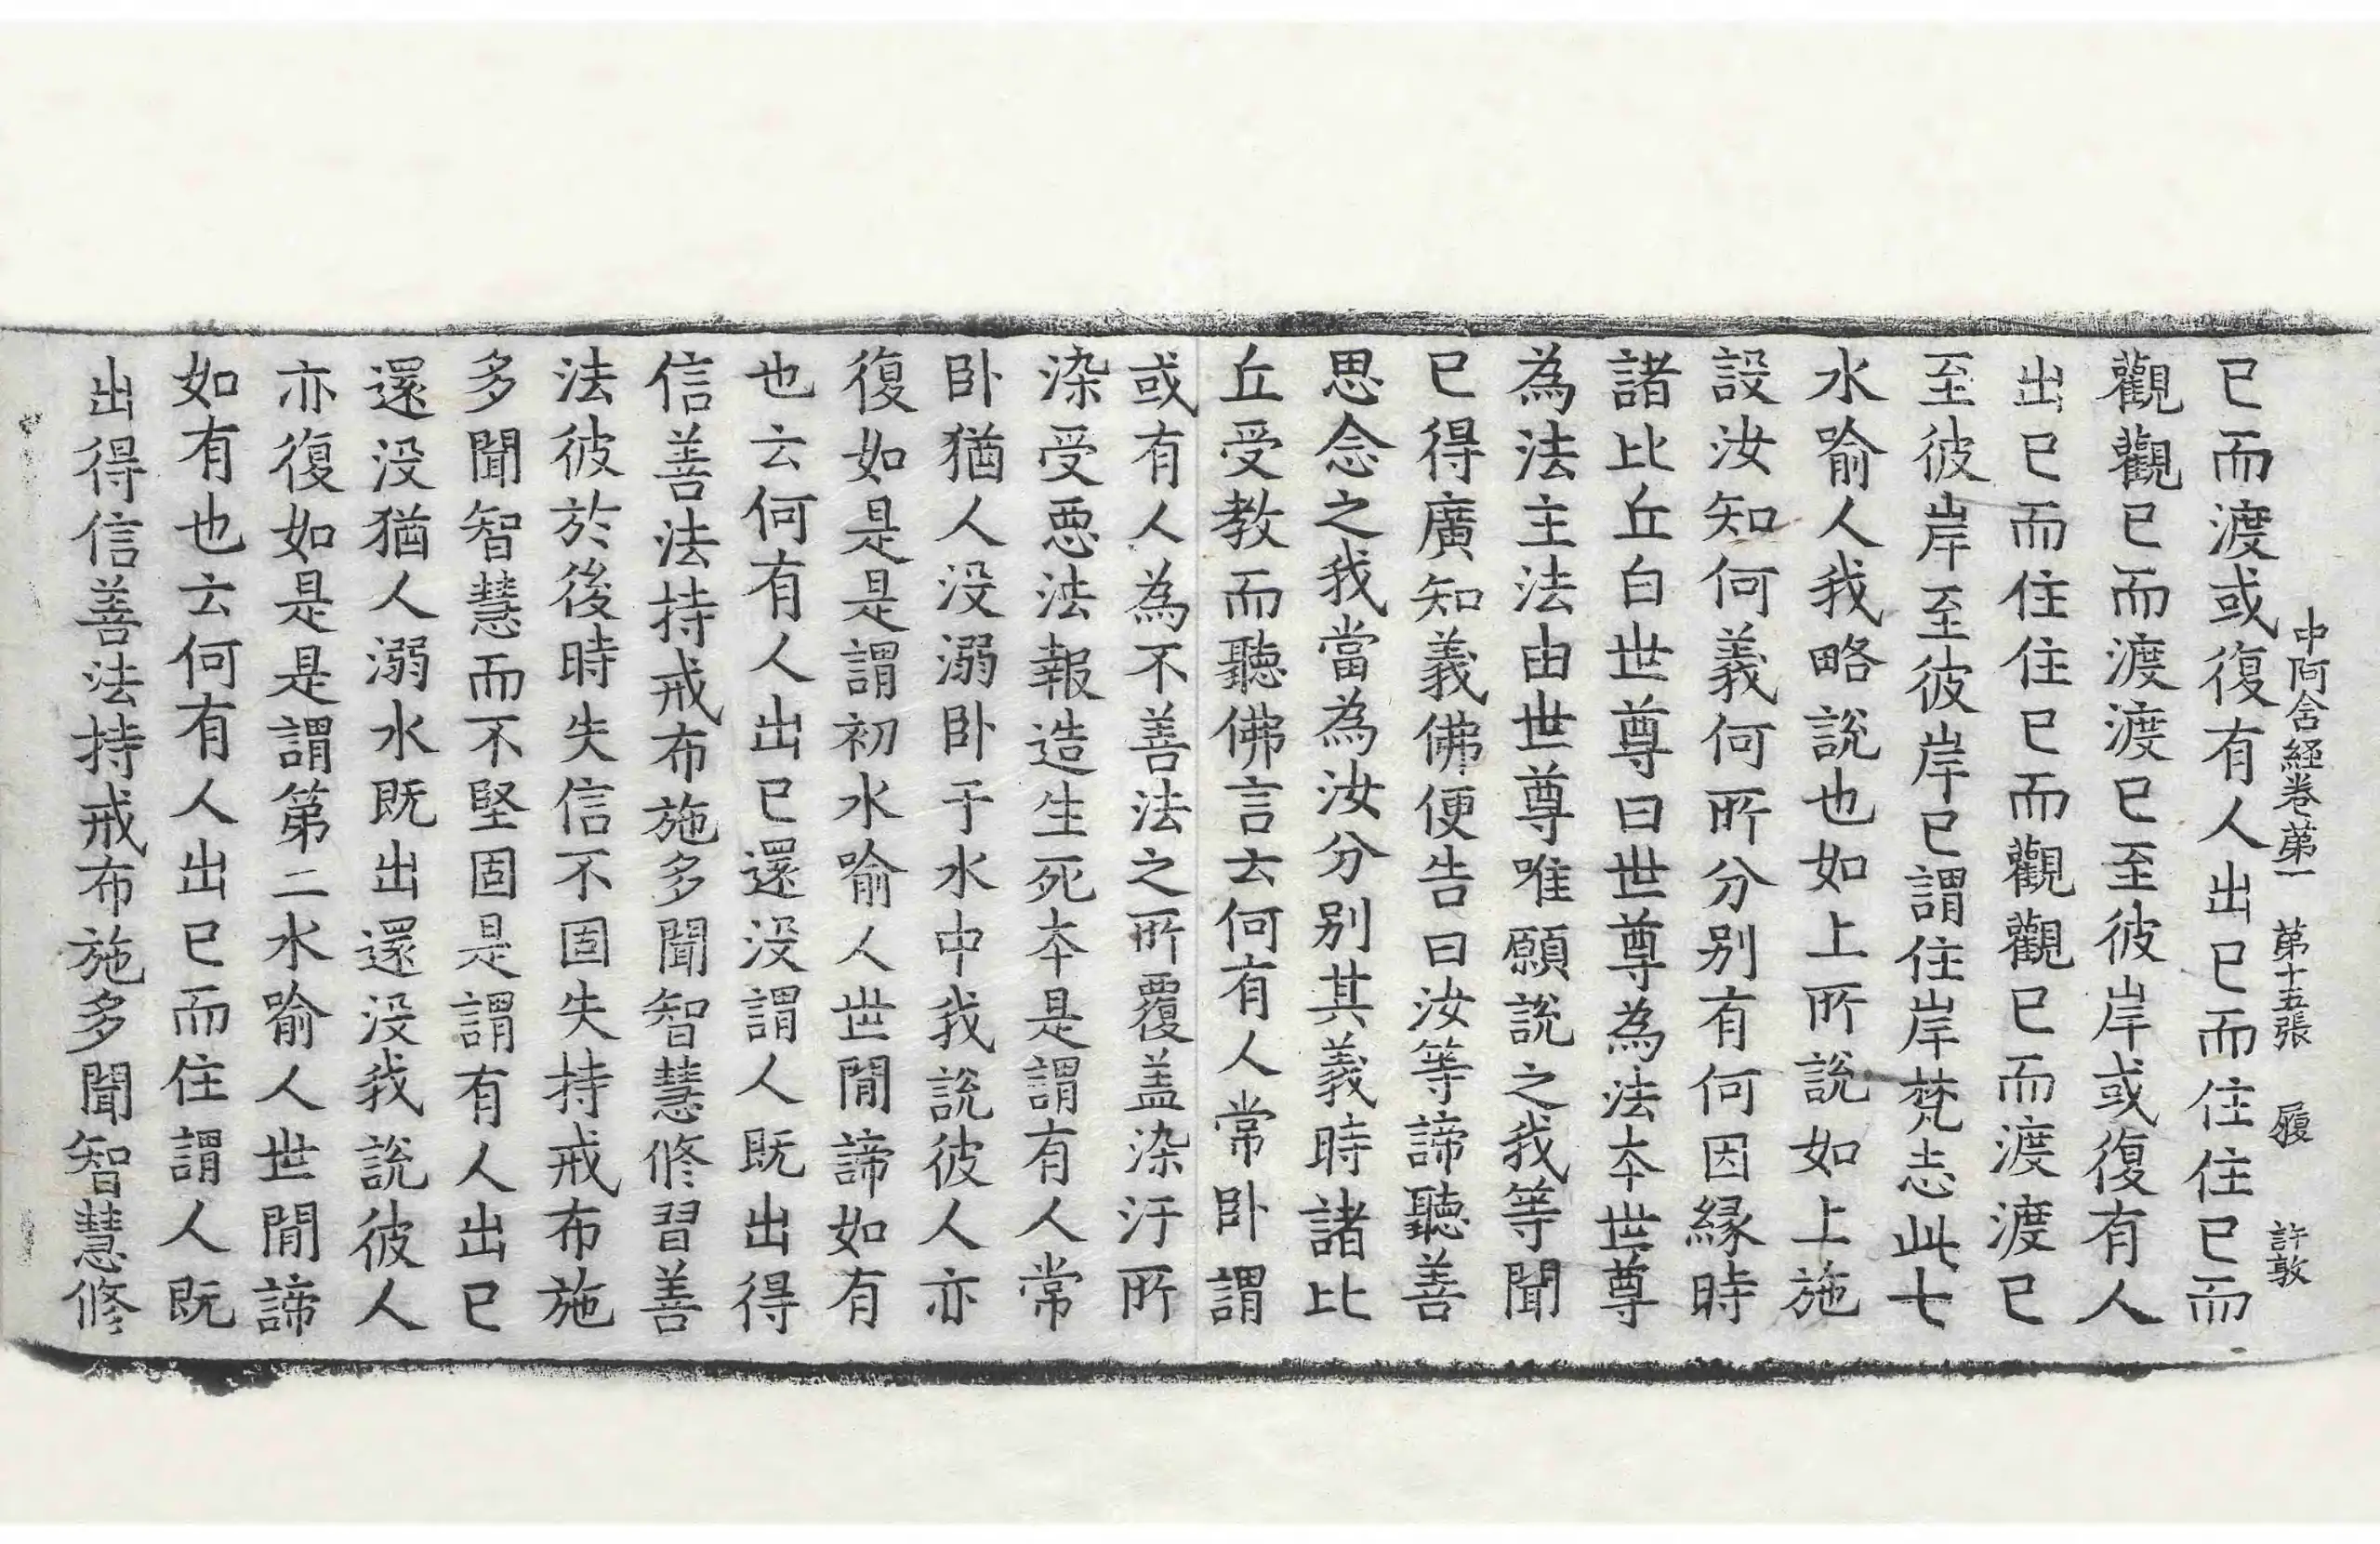 中阿含経卷苐一　苐十五張　履　許敦
已而渡或復有人出已而住住已而
觀觀已而渡渡已至彼岸或復有人
出已而住住已而觀觀已而渡渡已
至彼岸至彼岸已謂住岸梵志此七
水喻人我略說也如上所說如上施
設汝知何義何所分別有何因縁時
諸比丘白世尊曰世尊為法本世尊
為法主法由世尊唯願說之我等聞
已得廣知義佛便告曰汝等諦聽善
思念之我當為汝分別其義時諸比
丘受教而聽佛言云何有人常卧謂
或有人為不善法之所覆盖染汙所
染受惡法報造生死本是謂有人常
卧猶人没溺卧于水中我說彼人亦
復如是是謂初水喻人世閒諦如有
也云何有人出已還没謂人既出得
信善法持戒布施多聞智慧修習善
法彼於後時失信不固失持戒布施
多聞智慧而不堅固是謂有人出已
還没猶人溺水既出還没我說彼人
亦復如是是謂第二水喻人世閒諦
如有也云何有人出已而住謂人既
出得信善法持戒布施多聞智慧修